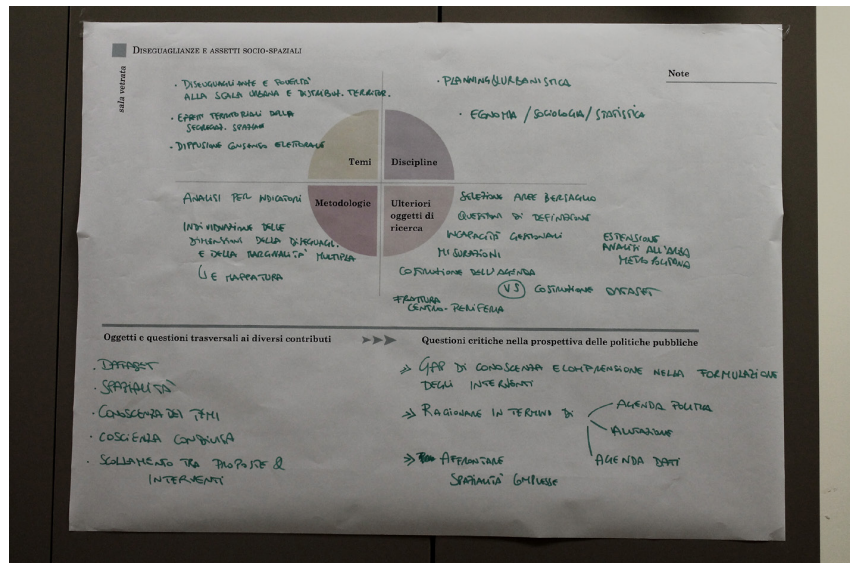 DISEGUAGLIANZE E ASSETTI SOCIO-SPAZIALI
sala vetrata
Note
· DISEUGUAGLIANZE E POVERTÀ
ALLA SCALA URBANA E DISTRIBUT. TERRITOR.
· EFFETTI TERRITORIALI DELLA
SEGREGAZ. SPAZIALE
· DIFFUSIONE CONSENSO ELETTORALE
· PLANNING&URBANISTICA
· ECONOMIA / SOCIOLOGIA / STATISTICA
Temi
Discipline
Metodologie
Ulteriori
oggetti di
ricerca
ANALISI PER INDICATORI
INDIVIDUAZIONE DELLE
DIMENSIONI DELLA DISEGUAGL.
E DELLA MARGINALITÀ MULTIPLA
E MAPPATURA
SELEZIONE AREE BERSAGLIO
QUESTIONI DI DEFINIZIONE
INCAPACITÀ GESTIONALI
MISURAZIONI
COSTRUZIONE DELL'AGENDA
VS COSTRUZIONE DATASET
FRATTURA
CENTRO-PERIFERIA
ESTENSIONE
ANALISI ALL'AREA
METROPOLITANA
Oggetti e questioni trasversali ai diversi contributi
Questioni critiche nella prospettiva delle politiche pubbliche
· DATASET
· SPAZIALITÀ
· CONOSCENZA DEI TEMI
· COSCIENZA CONDIVISA
· SCOLLAMENTO TRA PROPOSTE &
INTERVENTI
GAP DI CONOSCENZA E COMPRENSIONE NELLA FORMULAZIONE
DEGLI INTERVENTI
RAGIONARE IN TERMINO DI
AGENDA POLITICA
AGENDA DATI
AFFRONTARE
SPAZIALITÀ COMPLESSE